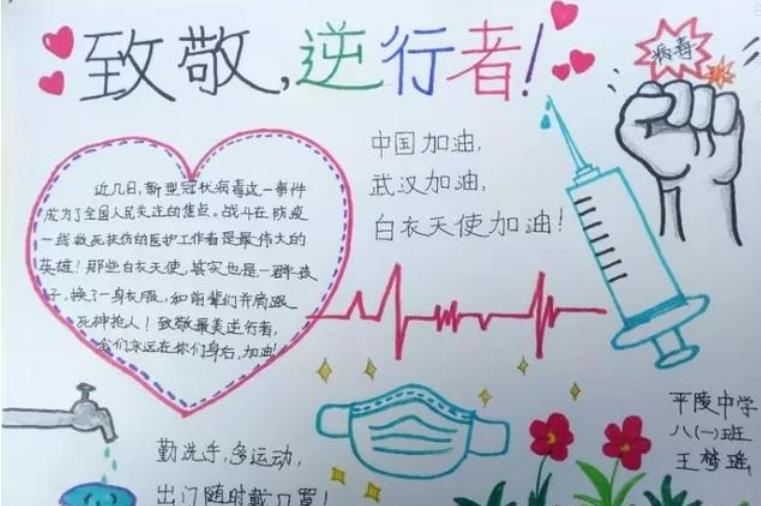 致敬,逆行者!
病毒
中国加油,
武汉加油,
白衣天使加油!
近几日,新型冠状病毒这一事件
成为了全国人民关注的焦点。战斗在防疫
一线救死扶伤的医护工作者是最伟大的
英雄!那些白衣天使,其实也是一群孩
子,换了一身衣服,和前辈们并肩跟
死神抢人!致敬最美逆行者,
我们永远在你们身后,加油!
平陵中学
八(一)班
王梦瑶
勤洗手,多运动,
出门随时戴口罩!